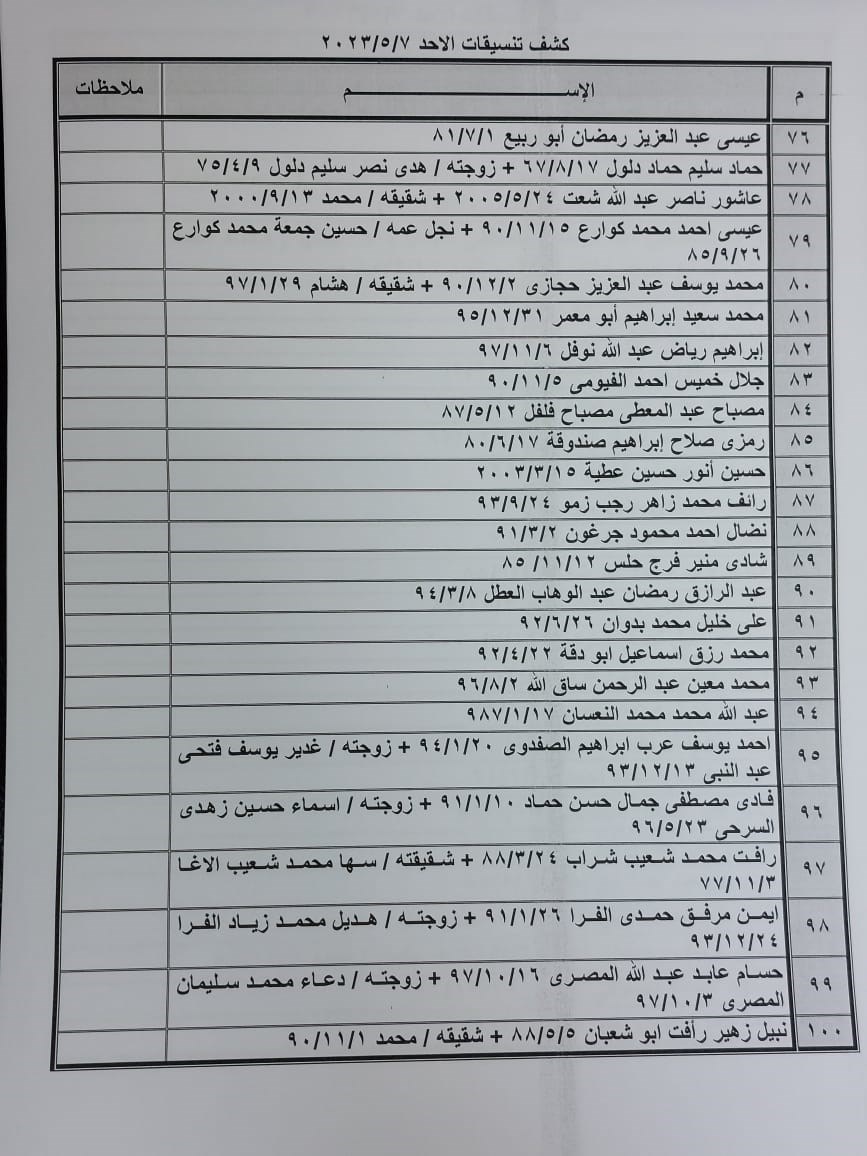 كشف تنسيقات الاحد ٢٠٢٣/٥/٧
م الإســــــــــــم ملاحظات
٧٦ عيسى عبد العزيز رمضان أبو ربيع ٨١/٧/١
٧٧ حماد سليم حماد دلول ٦٧/٨/١٧ + زوجته / هدى نصر سليم دلول ٧٥/٤/٩
٧٨ عاشور ناصر عبد الله شعت ٢٠٠٥/٥/٢٤ + شقيقه / محمد ٢٠٠٠/٩/١٣
٧٩ عيسى احمد محمد كوارع ٩٠/١١/١٥ + نجل عمه / حسين جمعة محمد كوارع
٨٥/٩/٢٦
٨٠ محمد يوسف عبد العزيز حجازى ٩٠/١٢/٢ + شقيقه / هشام ٩٧/١/٢٩
٨١ محمد سعيد إبراهيم أبو معمر ٩٥/١٢/٣١
٨٢ إبراهيم رياض عبد الله نوفل ٩٧/١١/٦
٨٣ جلال خميس احمد الفيومى ٩٠/١١/٥
٨٤ مصباح عبد المعطى مصباح فلفل ٨٧/٥/١٢
٨٥ رمزى صلاح إبراهيم صندوقة ٨٠/٦/١٧
٨٦ حسين أنور حسين عطية ٢٠٠٣/٣/١٥
٨٧ رائف محمد زاهر رجب زمو ٩٣/٩/٢٤
٨٨ نضال احمد محمود جرغون ٩١/٣/٢
٨٩ شادى منير فرج حلس ٨٥/١١/١٢
٩٠ عبد الرازق رمضان عبد الوهاب العطل ٩٤/٣/٨
٩١ على خليل محمد بدوان ٩٢/٦/٢٦
٩٢ محمد رزق اسماعيل ابو دقة ٩٢/٤/٢٢
٩٣ محمد معين عبد الرحمن ساق الله ٩٦/٨/٢
٩٤ عبد الله محمد محمد النعسان ٩٨٧/١/١٧
٩٥ احمد يوسف عرب ابراهيم الصفدوى ٩٤/١/٢٠ + زوجته / غدير يوسف فتحى
عبد النبى ٩٣/١٢/١٣
٩٦ فادى مصطفى جمال حسن حماد ٩١/١/١٠ + زوجته / اسماء حسين زهدى
السرحى ٩٦/٥/٢٣
٩٧ رافت محمد شعيب شراب ٨٨/٣/٢٤ + شقيقته / سها محمد شعيب الاغا
٧٧/١١/٣
٩٨ ايمن مرفق حمدى الفرا ٩١/١/٢٦ + زوجته / هديل محمد زياد الفرا
٩٣/١٢/٢٤
٩٩ حسام عابد عبد الله المصرى ٩٧/١٠/١٦ + زوجته / دعاء محمد سليمان
المصرى ٩٧/١٠/٣
١٠٠ نبيل زهير رأفت ابو شعبان ٨٨/٥/٥ + شقيقه / محمد ٩٠/١١/١